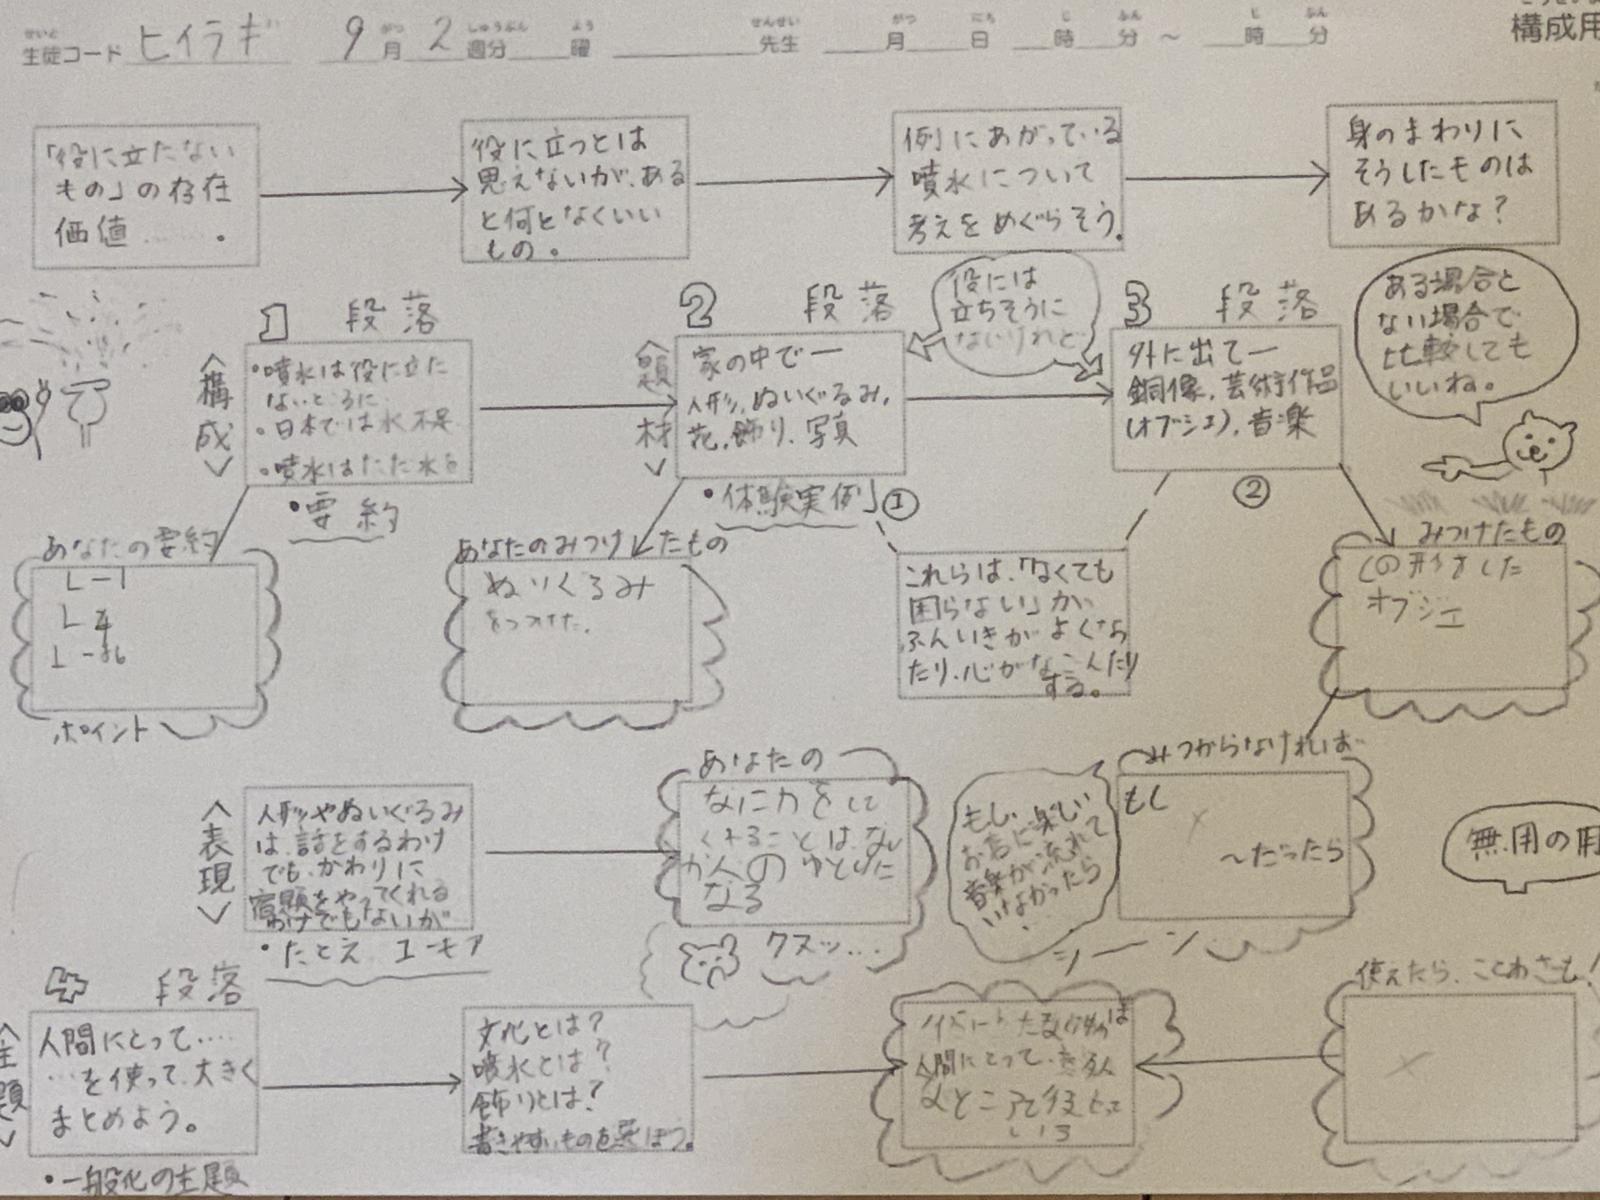 生徒コード ヒイラギ 9月 2週分 曜 先生 月 日 時 分 ～ 時 分
構成用
「役に立たない
もの」の存在
価値
役に立つとは
思えないが、ある
と何となくいい
もの。
例にあがっている
噴水について
考えをめぐらそう。
身のまわりに
そうしたものは
あるかな？
1 段落
<構成>
・噴水は役に立た
ないところに
・日本では水不足
・噴水はただ水を
・要約
2 段落
<題材>
家の中でー
人形、ぬいぐるみ、
花、飾り、写真
・体験実例①
役には
立ちそうに
ないけれど
3 段落
外に出てー
銅像、芸術作品
(オブジェ)、音楽
②
ある場合と
ない場合で
比較しても
いいね。
あなたの要約
ポイント
あなたのみつけたもの
ぬいぐるみ
をつけた。
これらは、「なくても
困らない」が、
ふんいきがよくなっ
たり、心がなごんだり
する。
みつけたもの
の形をした
オブジェ
<表現>
人形やぬいぐるみ
は、話をするわけ
でも、かわりに
宿題をやってくれる
わけでもないが
・たとえ ユーモア
あなたの
なにかをして
くれることはない
が人のゆとりに
なる
クスッ...
もし、
お店に楽しい
音楽が流れて
いなかったら
みつからなければ
もし
～だったら
シーーン
無用の用
4 段落
<主題>
人間にとって……
…を使って、大きく
まとめよう。
・一般化の主題
文化とは？
噴水とは？
飾りとは？
書きやすいものを選ぼう。
人間にとって
使えたら、ことわざも！